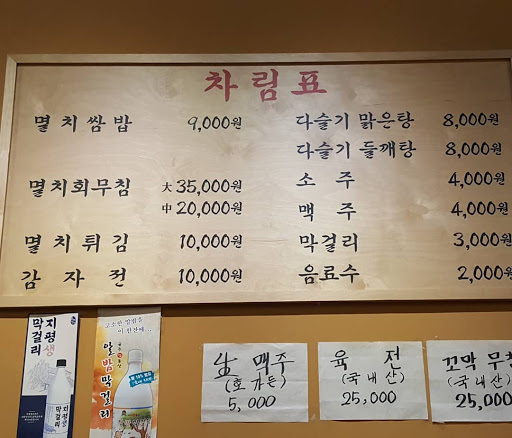 차림표
멸치쌈밥 9,000원
멸치회무침 大 35,000원
中 20,000원
멸치튀김 10,000원
감자전 10,000원
다슬기 맑은탕 8,000원
다슬기 들깨탕 8,000원
소주 4,000원
맥주 4,000원
막걸리 3,000원
음료수 2,000원
지평생
막걸리
지평생
막걸리
고소한 알밤을
이 한잔에...
알밤막걸리
生 맥주
(호가든)
5,000
육전
(국내산)
25,000
꼬막 무침
(국내산)
25,000